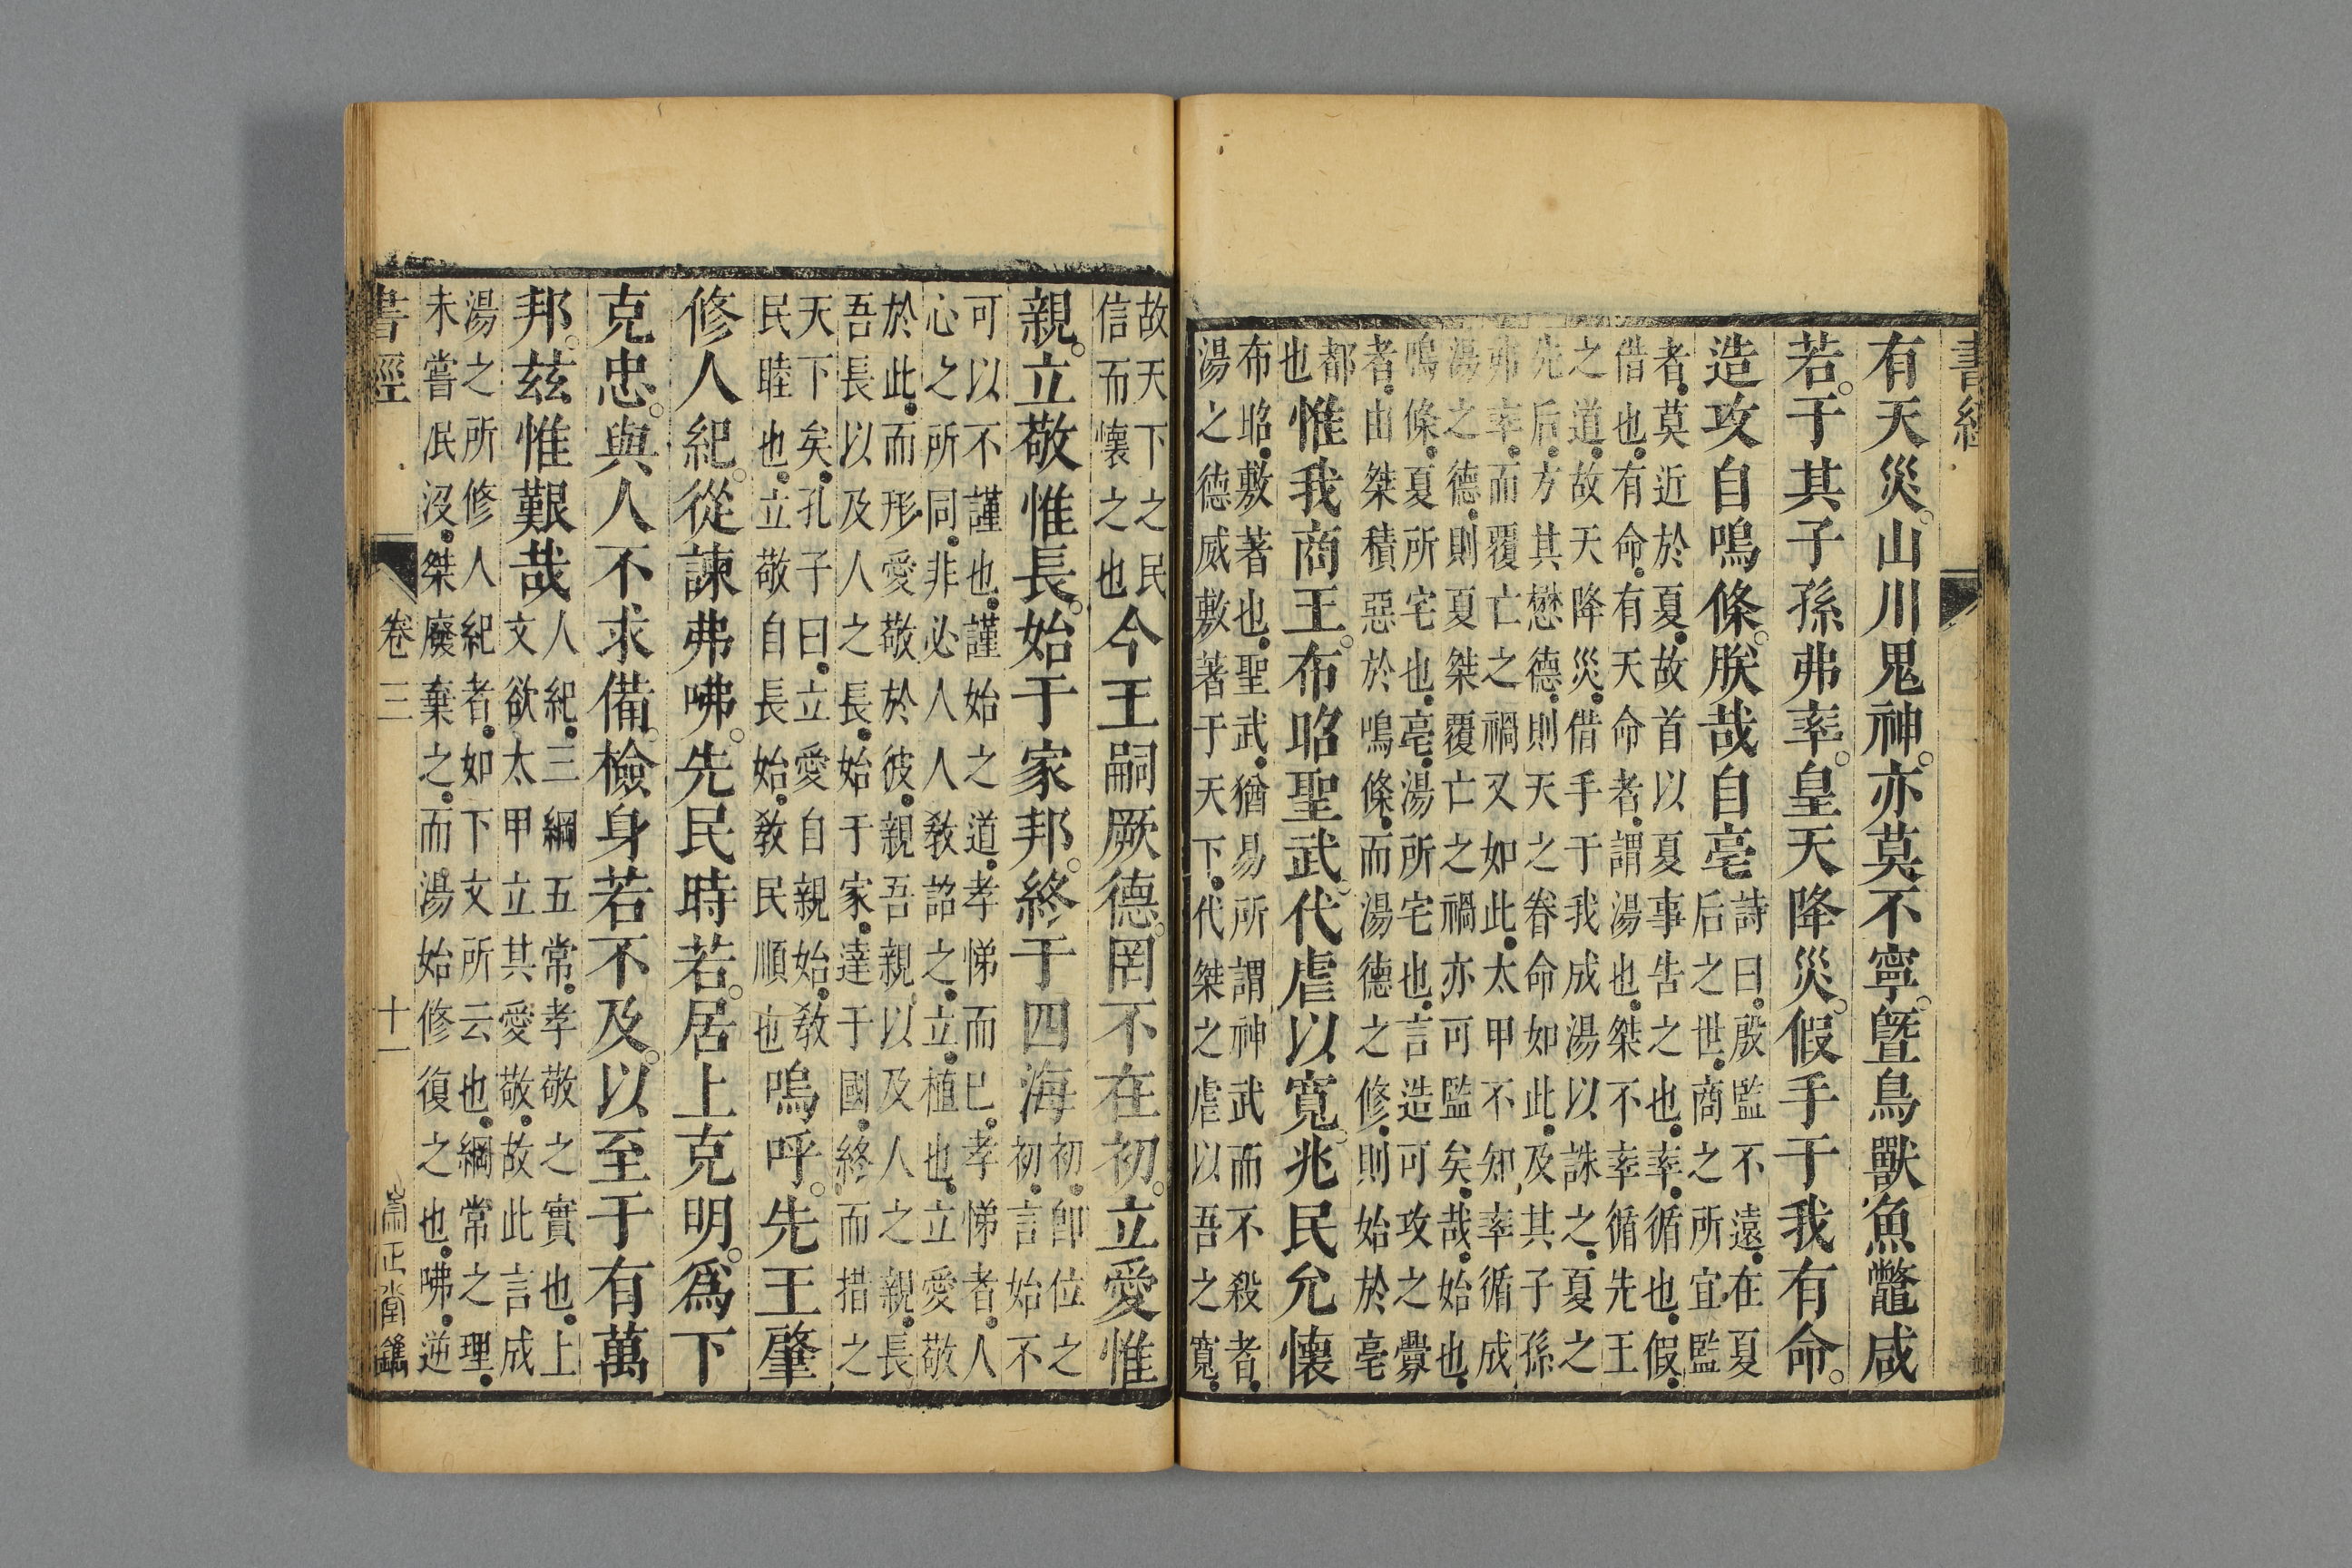 書經
有天災。山川鬼神。亦莫不寧。曁鳥獸魚鼈咸
若。于其子孫弗率。皇天降災。假手于我有命。
造攻自鳴條。朕哉自亳
詩曰。殷監不遠。在夏
后之世。商之所宜監
者。莫近於夏。故首以夏事告之也。率。循也。假。
借也。有命。有天命者。謂湯也。桀不率循先王
之道。故天降災。借手于我成湯以誅之。夏之
先后。方其懋德。則天之眷命如此。及其子孫
弗率。而覆亡之禍又如此。太甲不知率循成
湯之德。則夏桀覆亡之禍亦可監矣。哉。始也。
鳴條。夏所宅也。亳。湯所宅也。言造可攻之釁
者。由桀積惡於鳴條。而湯德之修。則始於亳
都
也
惟我商王。布昭聖武。代虐以寬。兆民允懷
布昭。敷著也。聖武。猶易所謂神武而不殺者。
湯之德威敷著于天下。代桀之虐以吾之寬。
故天下之民
信而懷之也
今王嗣厥德。罔不在初。立愛惟
親。立敬惟長。始于家邦。終于四海
初。卽位之
初。言始不
可以不謹也。謹始之道。孝悌而已。孝悌者。人
心之所同。非必人人敎詔之。立。植也。立愛敬
於此。而形愛敬於彼。親吾親。以及人之親。長
吾長。以及人之長。始于家。達于國。終而措之
天下矣。孔子曰。立愛自親始。敎
民睦也。立敬自長始。敎民順也
嗚呼。先王肇
修人紀。從諫弗咈。先民時若。居上克明。爲下
克忠。與人不求備。檢身若不及。以至于有萬
邦。茲惟艱哉
人紀。三綱五常。孝敬之實也。上
文欲太甲立其愛敬。故此言成
湯之所修人紀者。如下文所云也。綱常之理。
未嘗泯沒。桀廢棄之。而湯始修復之也。咈。逆
書經 卷三 十一 崇正堂鐫